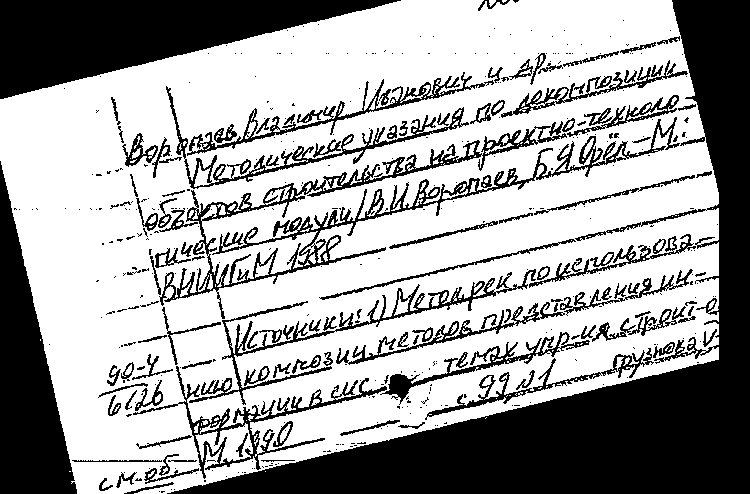 Воропаев, Владимир Иванович и др.
Методические указания по декомпозиции
объектов строительства на проектно-техноло-
гические модули / В.И. Воропаев, Б.Я. Орёл.- М.:
ВНИИГиМ, 1988
Источники: 1) Метод. рек. по использова-
90-4 нию композиц. методов представления ин-
6126 формации в сис темах упр-ия строит-
М., 1990 с. 99, л1
см. об.